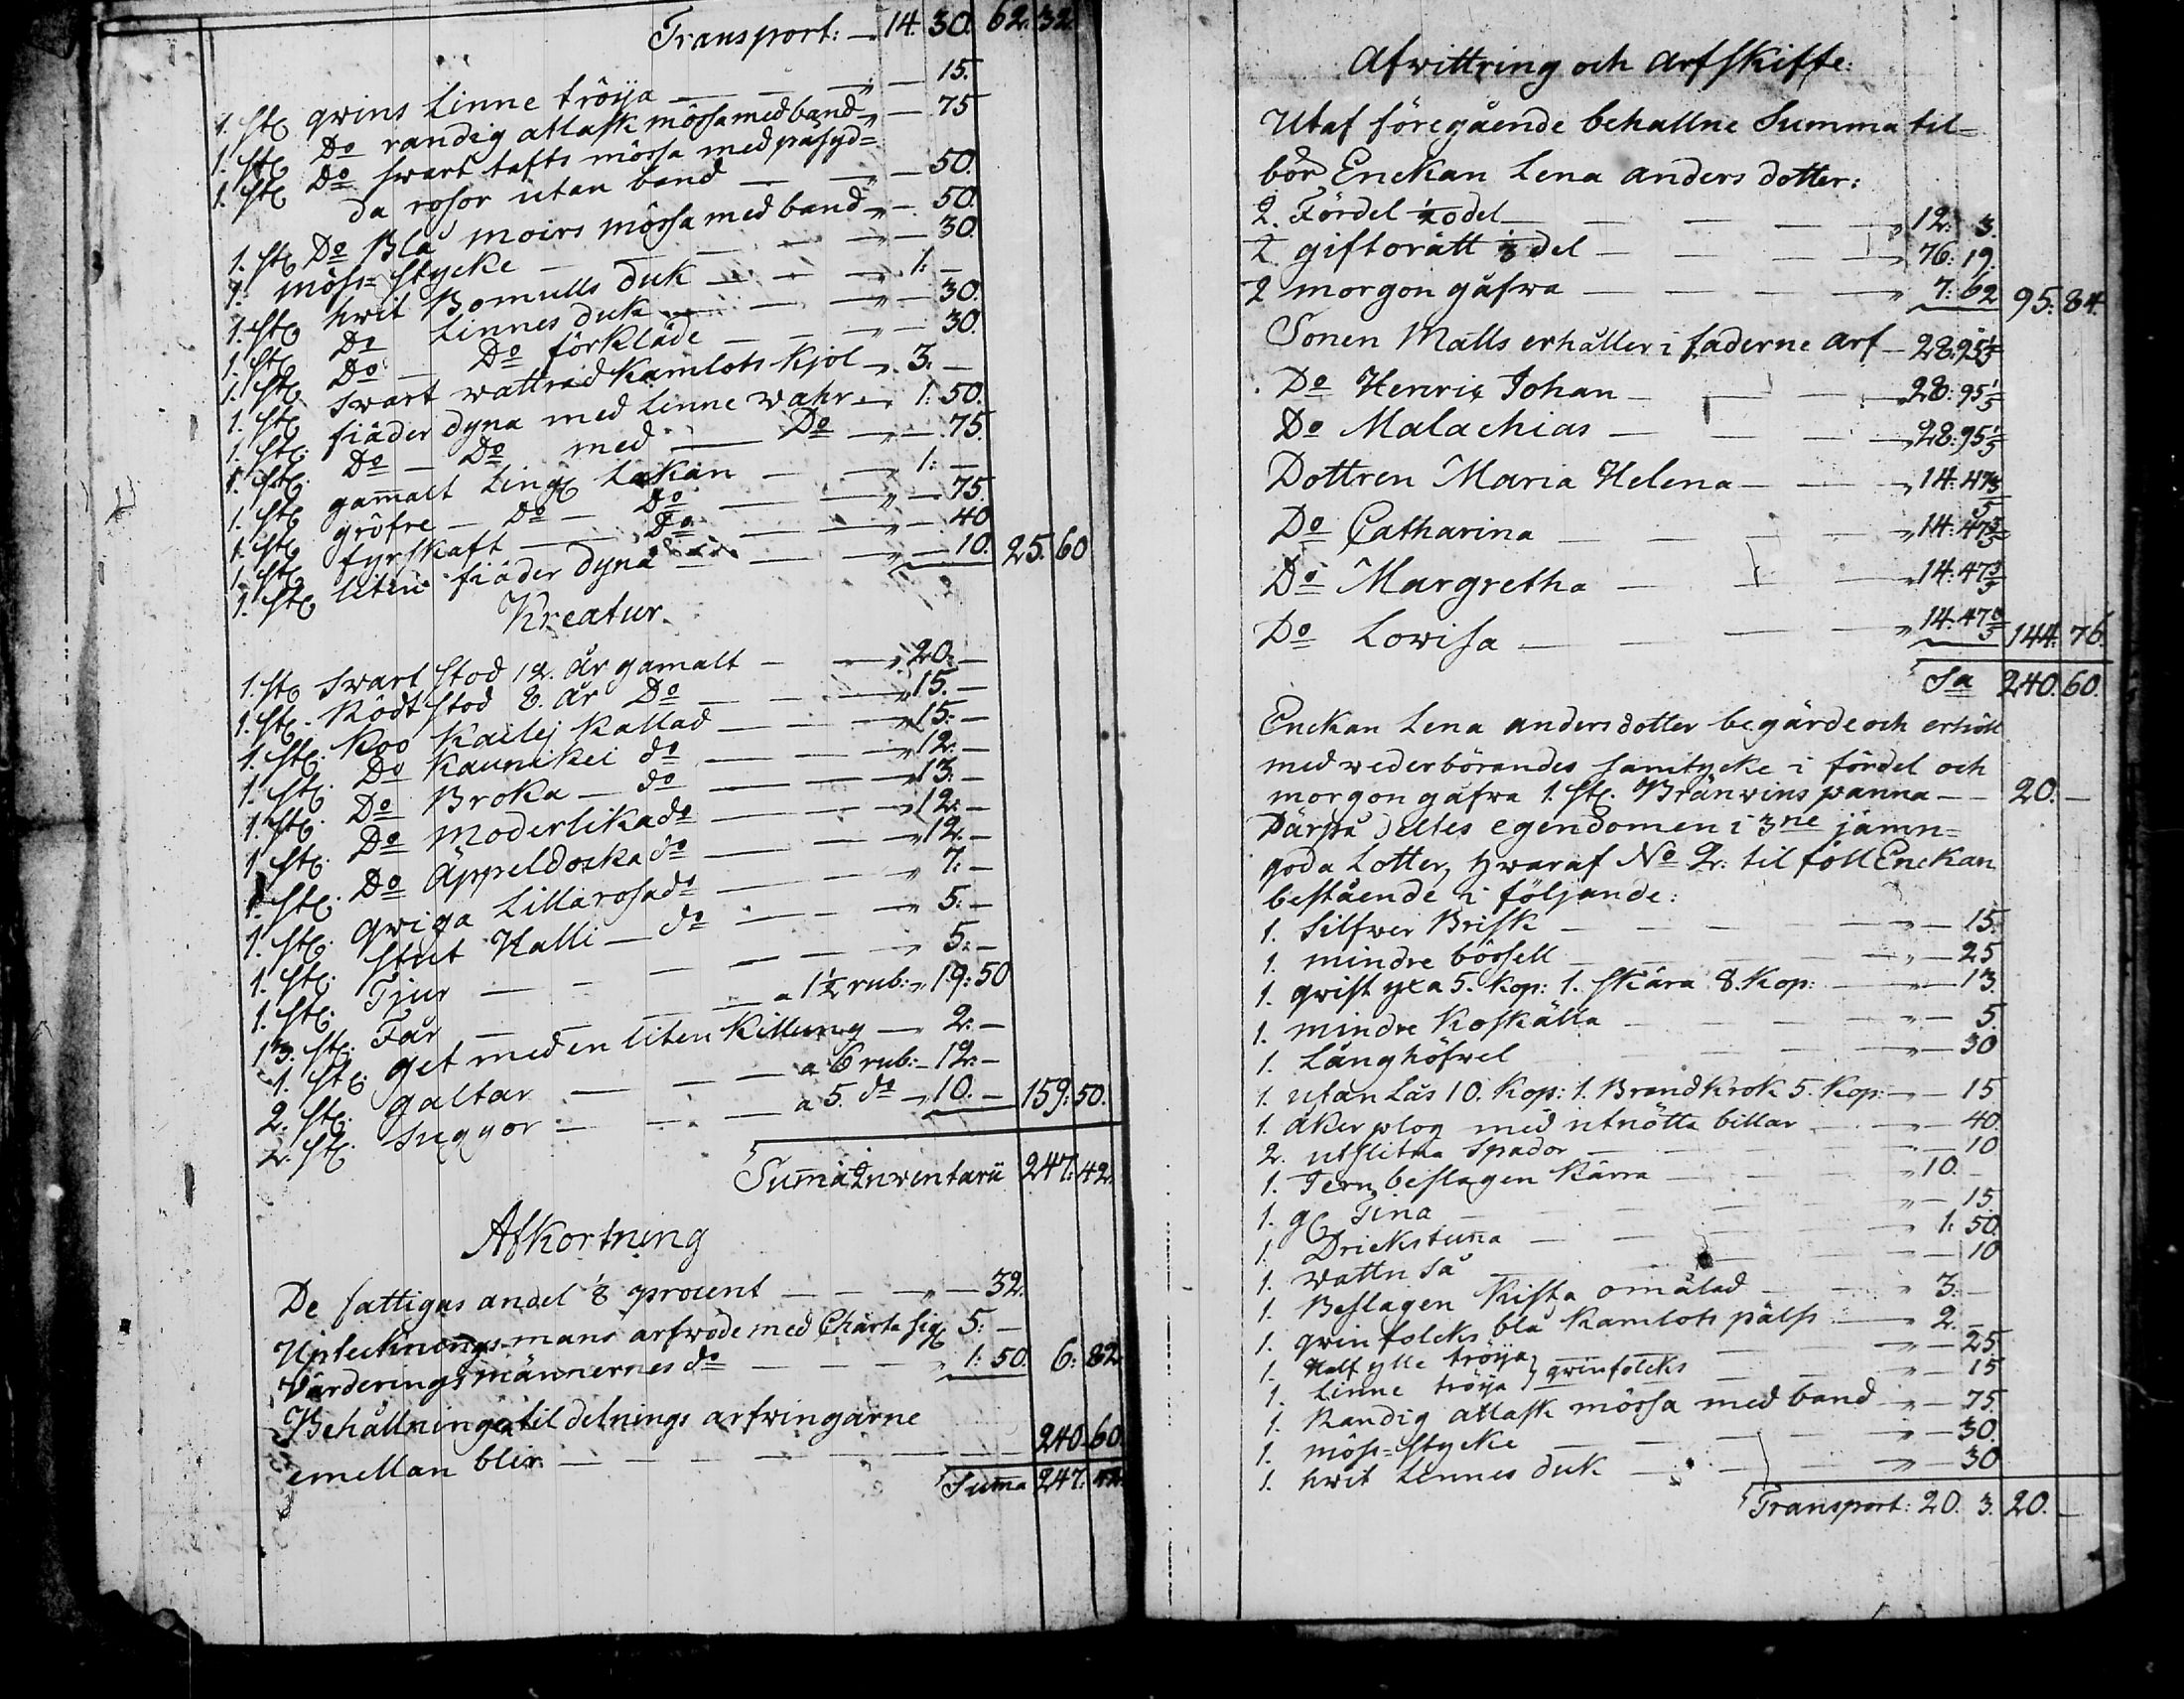 Transport: — 14. 30. 62. 32.
1. st. qwins Linne tröija — — " — 15.
1. st. Do randig atlask mössa med band " — 75
1. st. Do swart tafts mössa med påsyd=
da rosor utan band — — 50.
1. st. Do Blå moirs mössa med band " — 50.
1. möss=stycke — — — " — 30.
1. st. hwit Bomulls duk — — " 1: —
1. st. Do Linnes duk — — " — 30.
1. st. Do — Do förkläde — — " — 30.
1. st. swart wattrad Kamlots kjol " 3. —
1. st. fiäder dyna med Linne wahr " 1: 50.
1. st. Do — Do med — Do " — 75.
1. st. gam̄alt Ling. Lakan — " 1: —
1. st. gröfre — Do — Do — " — 75.
1. st. fyrskaft — Do — " — 40
1. st. liten fiäder dyna — — " — 10. 25. 60
Kreatur.
1. st. swart stod 12. år gamalt — — " 20: —
1. st. Rödt stod 8. år Do — — " 15. —
1. st. Koo Kailej Kallad — — " 15: —
1. st. Do Kaunikei do — — " 12. —
1. st. Do Broka — do — — " 13: —
1. st. Do Moderlika do — — " 12: —
1. st. Do Äppeldocka do — — " 12. —
1. st. Qwiga Lillarosa do — — " 7: —
1. st. Stut Halli — do — — " 5: —
1. st. Tjur — — — — " 5: —
13. st. Får — — — a 1½ rub: " 19: 50
1. st. get med en liten Killung — " 2. —
2. st. galtar — — — a 6 rub: — 12: —
2. st. Suggor — — — a 5. do " 10. — 159: 50.
Sum̄a Inventarii 247: 42.
Afkortning
De fattigas andel ⅛ procent — — " — 32.
Uptecknings mans arfwode med Charta sig. 5: —
Värderings männernes do — — " 1: 50. 6: 82.
Behållning til delnings arfwingarne
emellan blir — — — — — 240. 60.
Sum̄a 247: 42.
Afwittring och Arfskifte:
Utaf föregående behallne Summa til=
bör Enckan Lena anders dotter:
2. Fördel 1/20 del — — — " 12. 3.
2 giftorätt ⅓ del — — — " 76: 19.
2 morgon gåfwa — — — " 7: 62 95: 84.
Sonen Matts erhåller i faderne arf — 28. 95 1/5
Do Henric Johan — — — " 28: 95 1/5
Do Malachias — — — " 28: 95 1/5
Dottren Maria Helena — — " 14: 47 3/5
Do Catharina — — — " 14: 47 3/5
Do Margretha — — — " 14: 47 3/5
Do Lovisa — — — " 14: 47 3/5 144: 76.
Sa 240. 60.
Enckan Lena anders dotter begärde och erhöll
med wederbörandes samtycke i fördel och
morgon gåfwa 1. st. Bränwins panna — — 20. —
Därpå deltes egendomen i 3ne jämn=
goda Lotter, hwaraf No 2. til föll Enckan
bestående i följande:
1. Silfwer Brisk — — — " — 15.
1. mindre bössell — — — " — 25
1. qwist yxa 5. Kop: 1. skära 8. Kop: — " — 13.
1. mindre Koskälla — — — " — 5.
1. Långhöfwel — — — " — 30
1. utan Lås 10. Kop: 1. Brandkrok 5. Kop: " — 15
1. åker plog med utnötta billar — " — 40.
2. utslitna spador — — — — 10
1. Jern beslagen Kärra — — " 10. —
1. g. Tina — — — — " — 15.
1. Drickstun̄a — — — " 1: 50.
1. wattn så — — — — — 10
1. Beslagen Kista omålad — — " 3. —
1. qwinfolcks blå Kamlots pälss — " 2. —
1. Half ylle tröija } qwinfolcks — — — 25.
1. Linne tröija — — — 15
1. Randig atlask mössa med band " — 75.
1. möss=stycke — — — " — 30.
1. hwit Linnes duk — — — " — 30
Transport: 20. 3. 20. —